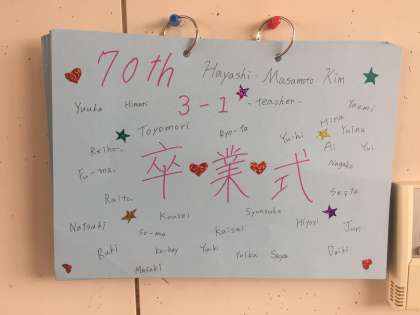 70th Hayashi Masamoto Kim
3-1 -teacher-
Yuuka Himari
Toyomori Ryo-ta Yuihi Mina Yuina
Reiho Ai Yui
Fu-ma Nagako
卒業式
Raito Seita
Kousei Syunsuke Hiyori
Natsuki So-ma Kaisei Jun
Ruki ko-hey Yuki Yuika Saya Daiki
Masaki